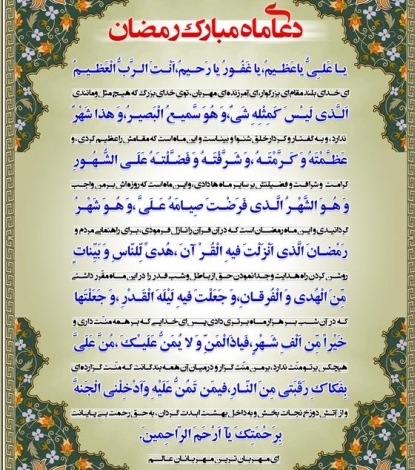 دعای ماه مبارک رمضان
یا عَلیُّ یا عَظیمُ، یا غَفُورُ یا رَحیمُ، اَنْتَ الرَّبُّ الْعَظیمُ
ای خدای بلند مقام ای بزرگوار ای آمرزنده ای مهربان، توی خدای بزرگ که هیچ مثل و مانندی
الَّذی لَیْسَ کَمِثْلِهِ شَیْءٌ، وَ هُوَ سَّمیعُ الْبَصیرُ، وَ هذا شَهْرٌ
ندارد، و به گفتار و کردار خلق شنوا و بیناست و این ماه است که مقامش را عظیم کردی، و
عَظَّمْتَهُ وَ کَرَّمْتَهُ، وَ شَرَّفْتَهُ وَ فَضَّلْتَهُ عَلَی الشُّهُورِ
کرامت و شرافت و فضیلتش بر سایر ماه ها دادی، و این ماه است که روزه اش بر من واجب
وَ هُوَ الشَّهْرُ الَّذی فَرَضْتَ صِیامَهُ عَلَیَّ، وَ هُوَ شَهْرُ
گردانیدی و این ماه رمضان است که در آن قرآن را نازل فرمودی، برای راهنمایی مردم و
رَمَضانَ الَّذی اَنْزَلْتَ فیهِ الْقُرْآنَ، هُدیً لِلنّاسِ وَ بَیِّناتٍ
روشن کردن راه هدایت و جدا نمودن حق از باطل و شب قدر را در این ماه مقرر داشتی
مِنَ الْهُدی وَ الْفُرقانِ، وَ جَعَلْتَ فیهِ لَیْلَةَ الْقَدْرِ، وَ جَعَلْتَها
که در آن شب بر هزار ماه برتری دادی پس ای خدایی که بر همه منت داری و
خَیْراً مِنْ اَلْفِ شَهْرٍ، فَیا ذَا الْمَنِّ وَ لا یُمَنُّ عَلَیْکَ، مُنَّ عَلَیَّ
هیچکس بر تو منت ندارد، بر من منت گزار و در میان آن همه بندگانت که منت گزارده ای
بِفَکاکِ رَقَبَتی مِنَ النّارِ، فیمَنْ تَمُنُّ عَلَیْهِ وَ اَدْخِلْنِی الْجَنَّةَ
و از آتش دوزخ نجات بخش و به داخل بهشت ابدت گردان، به حق رحمت بی پایانت
بِرَحْمَتِکَ یا اَرْحَمَ الرّاحِمینَ.
ای مهربان ترین مهربانان عالم